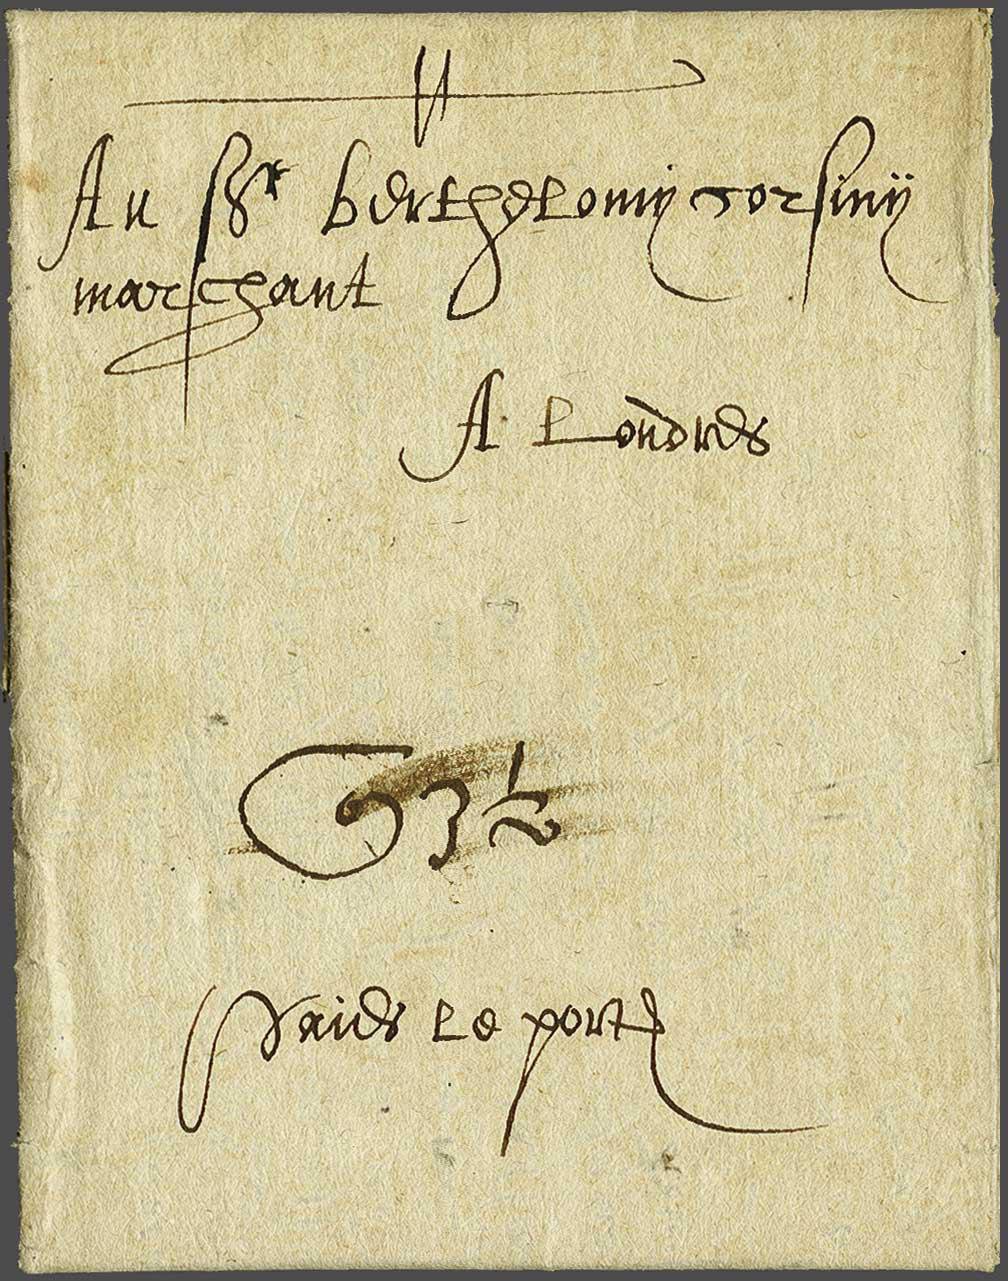 Au Sr berthelomy Corsiny
marchant
A Londres
3 ½
paies le porte